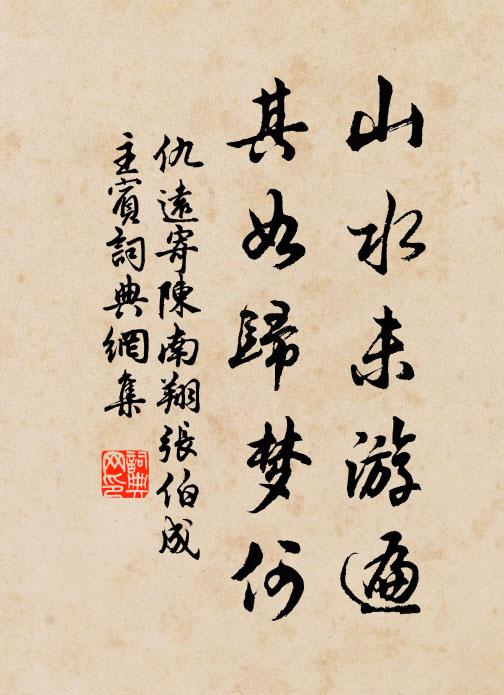 山水未游遍
其如歸梦何
仇遠寄陳南翔張伯成
主賓詞典網集
詞典
网印